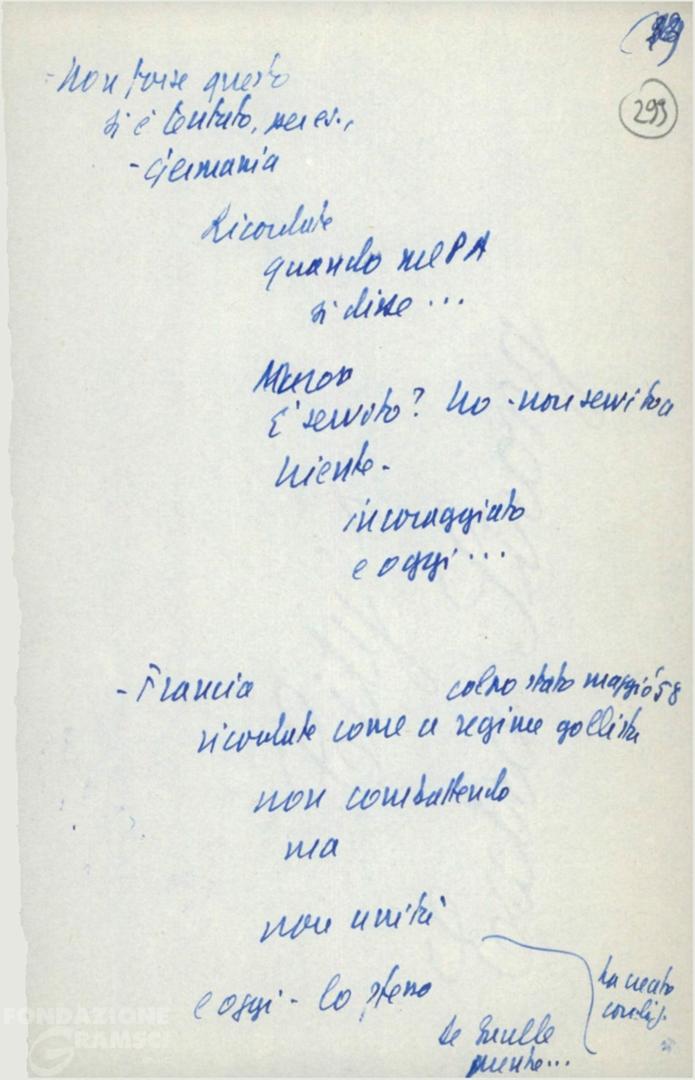 299
- Non forse questo
si è tentato, per es.,
- Germania
Ricordate
quando nel PA
si disse ...
È servito? No - non servito a
niente -
incoraggiato
e oggi ...
- Francia
colpo stato maggio 58
ricordate come a regime gollista
non combattendo
ma
non unità
e oggi - lo stesso
De Gaulle
ha creato
FONDAZIONE
GRAMSCI